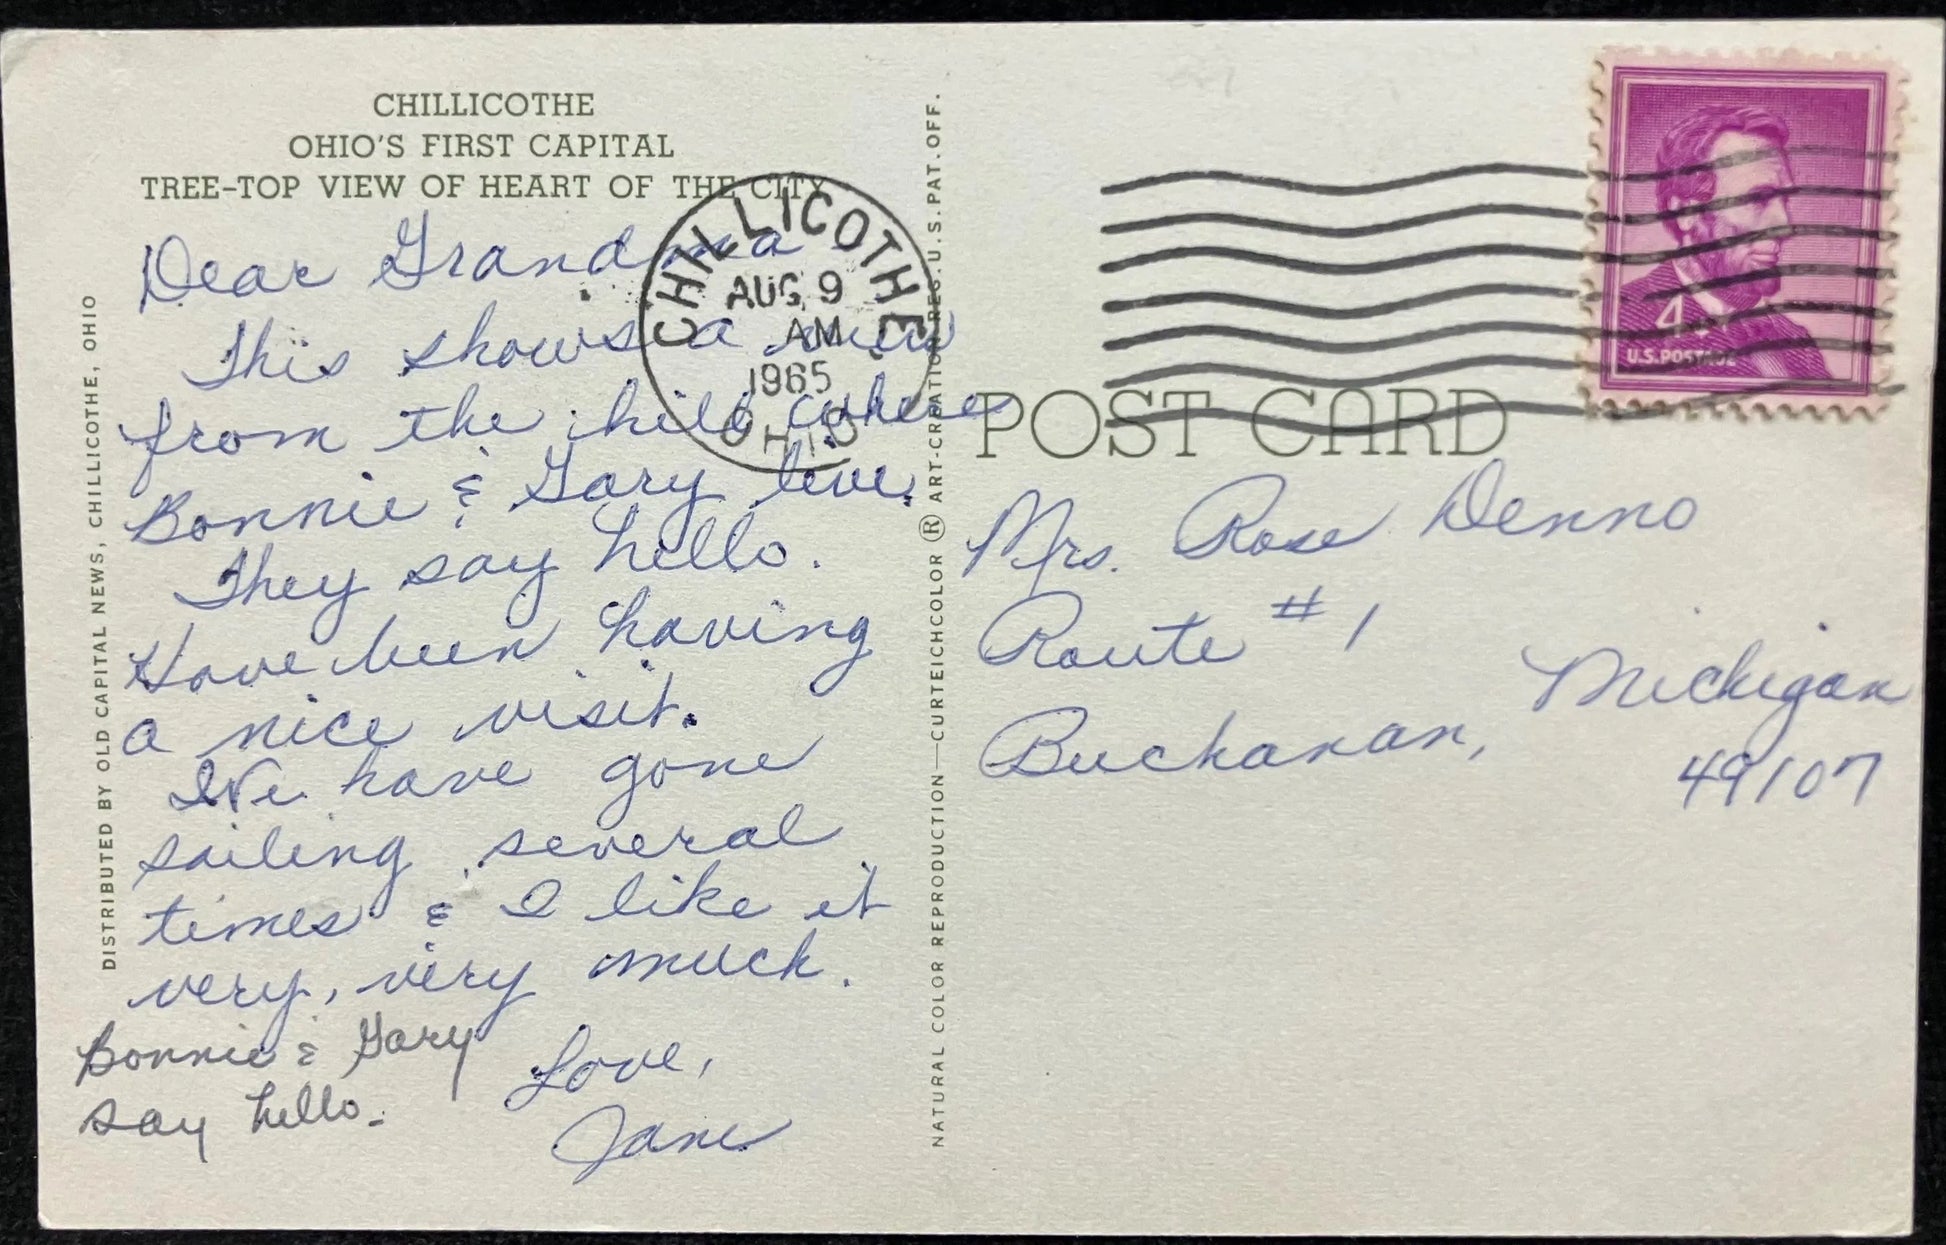 CHILLICOTHE
OHIO'S FIRST CAPITAL
TREE-TOP VIEW OF HEART OF THE CITY
Dear Grandma -
This shows a view
from the hill where
Bonnie & Gary live.
They say hello.
Have been having
a nice visit.
We have gone
sailing several
times & I like it
very, very much.
Love,
Jane
Bonnie & Gary
say hello.
DISTRIBUTED BY OLD CAPITAL NEWS, CHILLICOTHE, OHIO
NATURAL COLOR REPRODUCTION—CURTEICHCOLOR ® ART-CREATION REG. U.S. PAT. OFF.
CHILLICOTHE
AUG 9
AM
1965
OHIO
4¢
U.S. POSTAGE
POST CARD
Mrs. Rose Denno
Route #1
Buchanan, Michigan
49107